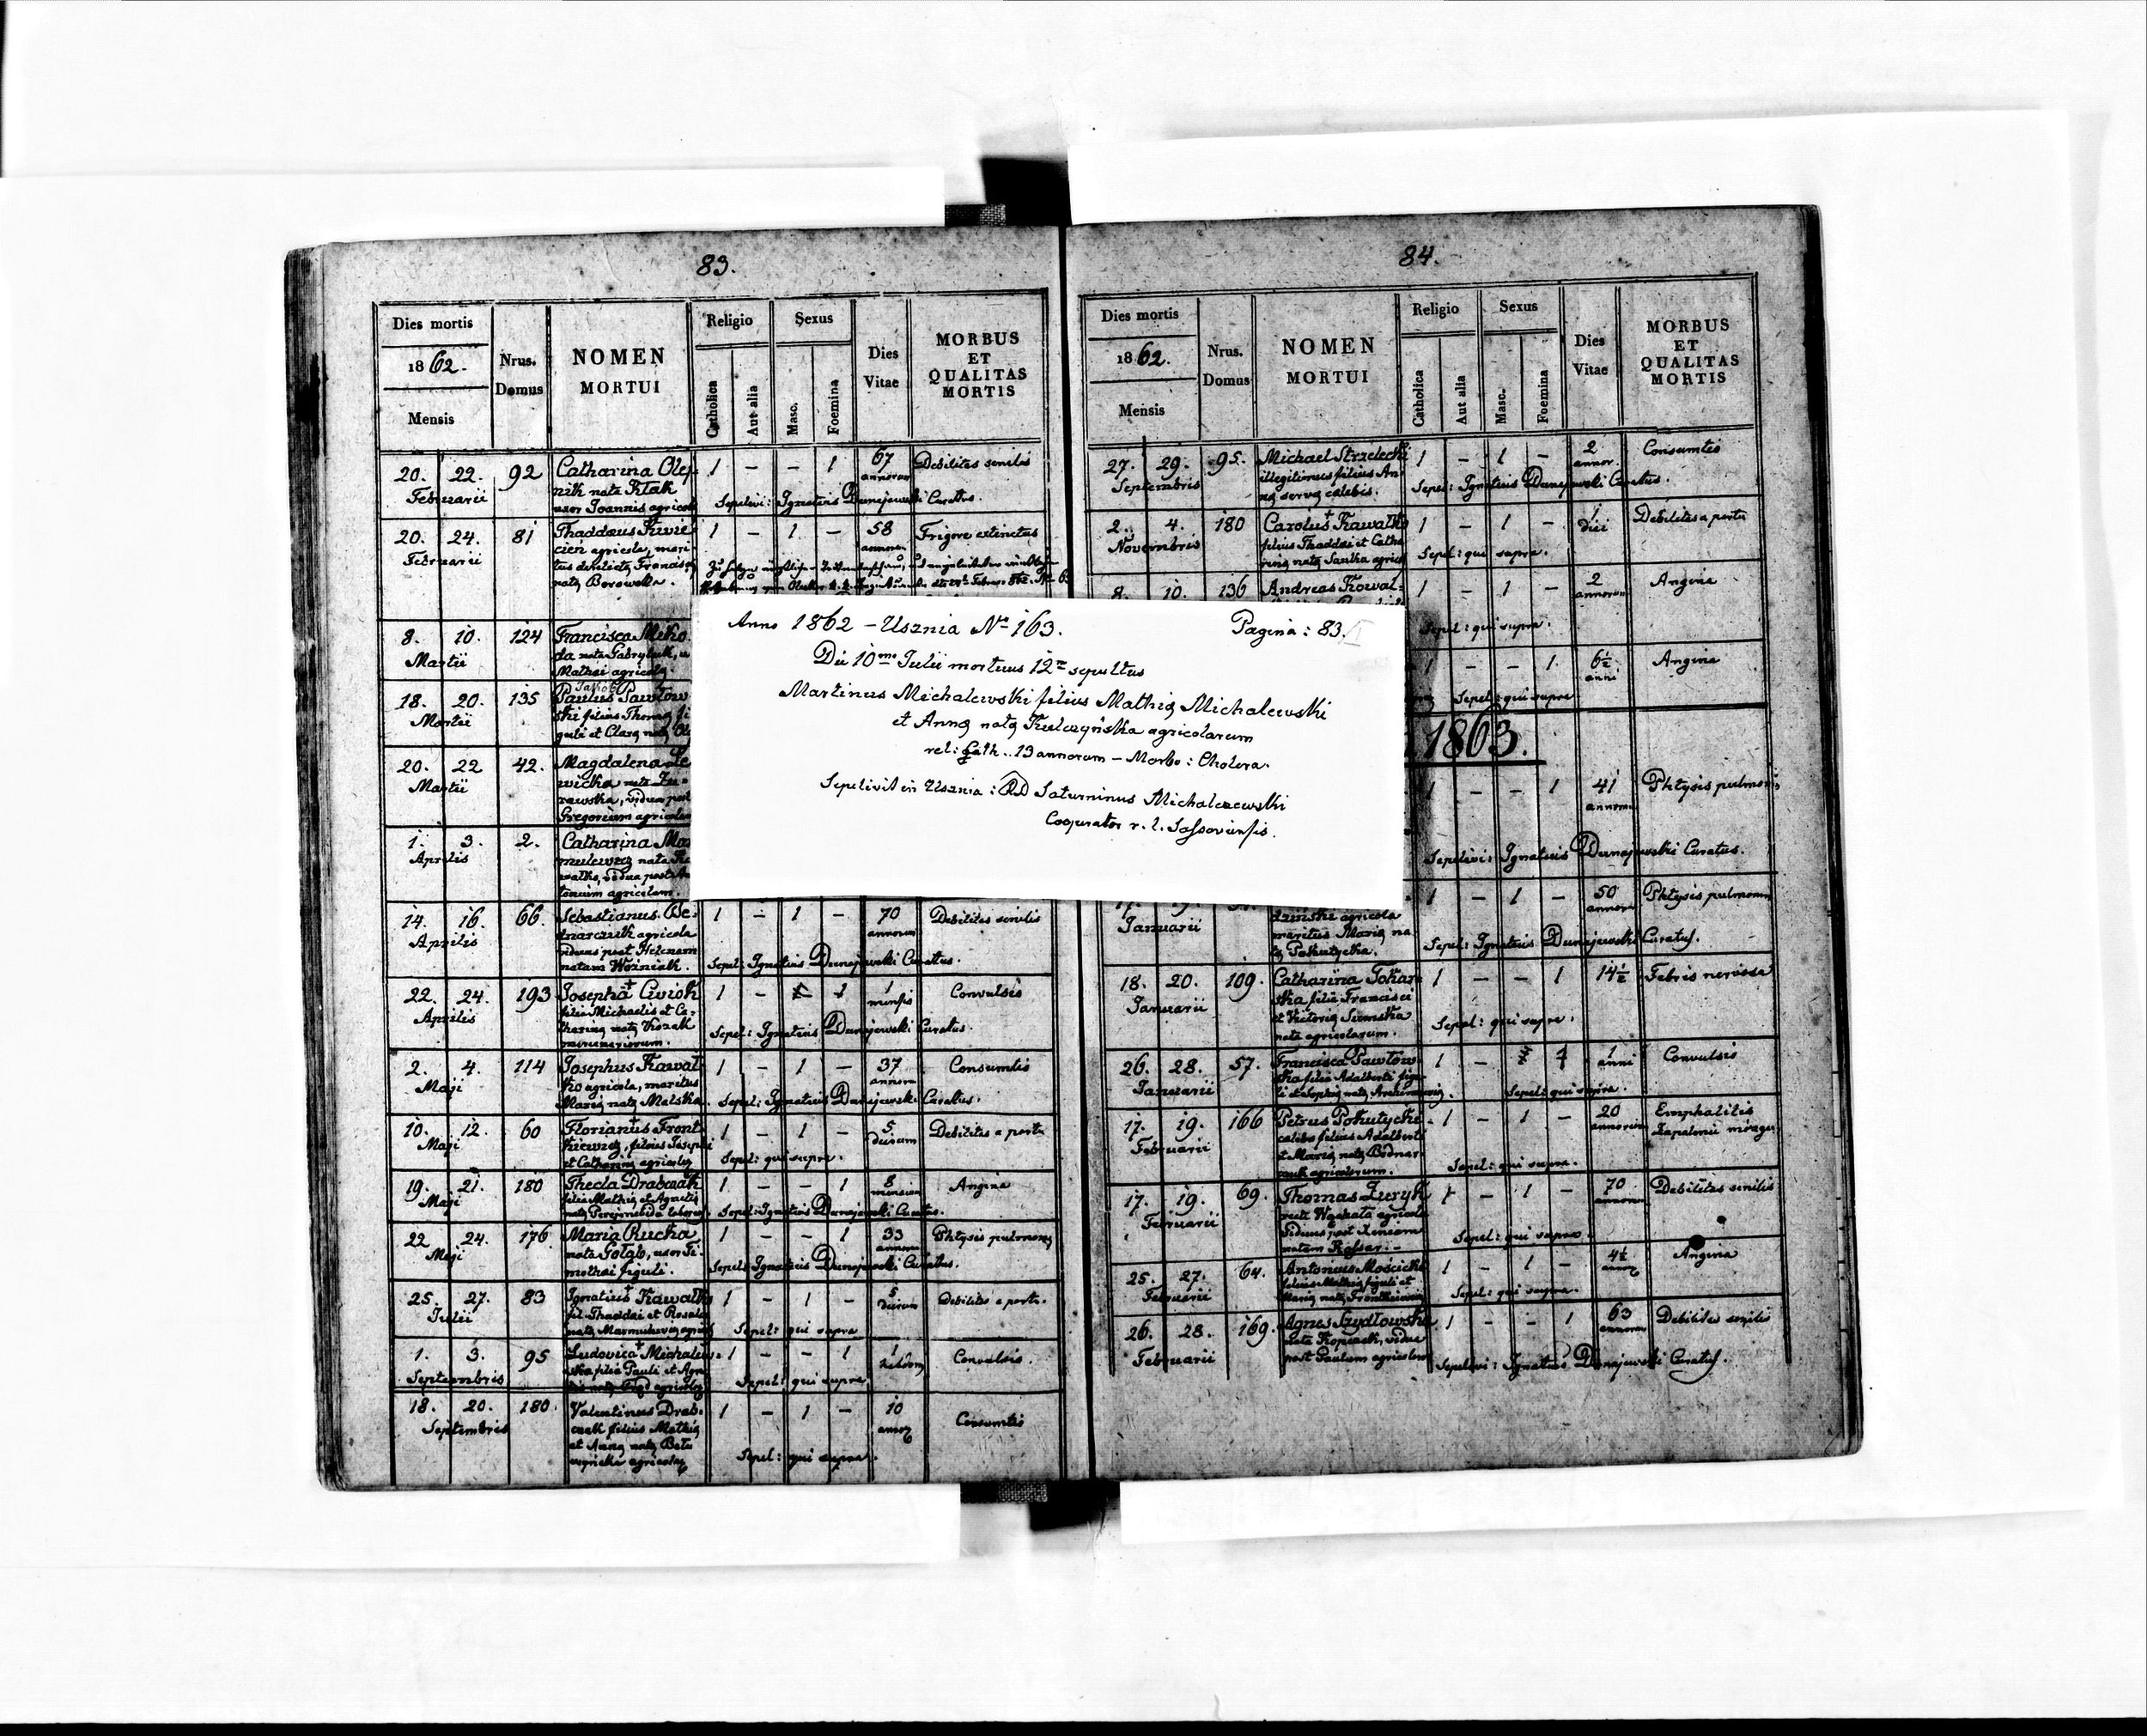 83.
Dies mortis
1862.
Mensis
Nrus.
Domus
NOMEN
MORTUI
Religio
Catholica
Aut alia
Sexus
Masc.
Foemina
Dies
Vitae
MORBUS
ET
QUALITAS
MORTIS
20. 22. 92 Catharina Olej- 1 – – 1 67 Debilitas senilis
Februarii nik nata Ktak annorum
uxor Joannis agricol
Sepelivi: Ignatius Dunajewski Curatus.
20. 24. 81 Thaddaus Kwie 1 – 1 – 58 Frigore extinctus
Februarii cień agricola, mari
tus derelicta Francisca
nata Borowska.
8. 10. 124 Francisca Miko
Martii da nata Gabryluk, u
Mathei agricola
18. 20. 135 Paulus Pawłow
Martii ski filius Thoma fi
guli et Clara nata
20. 22 42. Magdalena
Martii wicka nata
rawska, vidua post
Gregorium agricolam
1. 3. 2. Catharina
Aprilis nata
vidua post
tonium agricolam.
14. 16 66. Sebastianus Be- 1 – 1 – 70 Debilitas senilis
Aprilis dnarczuk agricola annorum
viduus post Helenam
natam Woźniak.
Sepel: Ignatius Dunajewski Curatus.
22. 24. 193 Josepha Cwiok 1 – 1 1 Convulsis
Aprilis filia Michaelis et Ca- mensis
tharina nata Kozak
Sepel: Ignatius Dunajewski Curatus.
2. 4. 114 Josephus Kawal- 1 – 1 – 37 Consumtis
Maji ko agricola, maritus annorum
Maria nata Malska.
Sepel: Ignatius Dunajewski Curatus.
10. 12. 60 Florianus Front- 1 – 1 – 5 Debilitas a partu
Maji kiewicz, filius Josephi dierum
et Catharina agricolar
Sepel: qui supra.
19. 21. 180 Thecla Drabczak 1 – – 1 8 Angina
Maji filia Mathia et mensium
Sepel: Ignatius Dunajewski Curatus.
22 24. 176 Maria Rucha 1 – – 1 33 Phtysis pulmonum
Maji nata Gołąb, uxor Ti- annorum
mothai figuli.
Sepel: Ignatius Dunajewski Curatus.
25. 27. 83 Ignatius Kawalko 1 – 1 – 5 Debilitas a partu.
Julii fil. Thaddai et Rosalia dierum
Sepel: qui supra
1. 3. 95 Ludovica Michalew- 1 – – 1 1 Convulsis.
Septembris ska filia Pauli et
Sepel: qui supra
18. 20. 180. Valentinus Drab- 1 – 1 – 10 Consumtis
Septembris czak filius Mathia annor
et Anna nata
Sepel: qui supra.
Anno 1862 – Usznia No 163. Pagina: 83.
Die 10ma Julii mortuus 12a sepultus
Martinus Michalewski filius Mathia Michalewski
et Anna nata Kulczyńska agricolarum
rel: Cath.. 13 annorum – Morbo: Cholera.
Sepelivit in Usznia: RD Saturninus Michalczewski
Cooperator r. l. Sassoviensis.
84.
Dies mortis
1862.
Mensis
Nrus.
Domus
NOMEN
MORTUI
Religio
Catholica
Aut alia
Sexus
Masc.
Foemina
Dies
Vitae
MORBUS
ET
QUALITAS
MORTIS
27. 29. 95. Michael Strzelecki 1 – 1 – 2 Consumtis
Septembris illegitimus filius An- annor.
na serva calebis.
Sepel: Ignatius Dunajewski Curatus.
2. 4. 180 Carolus Kawalko 1 – 1 – 1 Debilitas a partu
Novembris filius Thaddai et Catha diei
rina nata Saulka agricol
Sepel: qui supra.
8. 10. 136 Andreas Kowal- 1 – 1 – 2 Angina
annorum
Sepel: qui supra.
1 – – 1. 6½ Angina
anni
Sepel: qui supra
1863.
1 – – 1 41 Phtysis pulmonis
annorum
Sepelivi: Ignatius Dunajewski Curatus.
1 – 1 – 50 Phtysis pulmonum
Januarii dzinski agricola annorum
maritus Maria na
ta Pokutycka.
Sepel: Ignatius Dunajewski Curatus.
18. 20. 109. Catharina Tokar- 1 – – 1 14½ Febris nervosa
Januarii ska filia Francisci
et Victoria Sumska
nata agricolarum.
Sepel: qui supra.
26. 28. 57. Francisca Pawłow- 1 – 1 1 Convulsis
Januarii ska filia Adalberti figu- anni
Sepel: qui supra.
17. 19. 166 Petrus Pokutycki 1 – 1 – 20 Emphalitis
Februarii calebs filius Adalberti annorum Zapalenie mózgu
et Maria nata Bednar
czuk agricolarum.
Sepel: qui supra.
17. 19. 69. Thomas Zuryk 1 – 1 – 70 Debilitas senilis
Februarii agricola annorum
viduus post Xeniam
natam Kossar. –
Sepel: qui supra.
25. 27. 64. Antonius Mościcki 1 – 1 – 4½ Angina
Februarii filius Mathia figuli et annor
Maria nata Frontkiewicz
Sepel: qui supra.
26. 28. 169. Agnes Szydłowska 1 – – 1 63 Debilitas senilis
Februarii nata Kopczak, vidua annorum
post Paulum agricolam
Sepelivi: Ignatius Dunajewski Curatus.